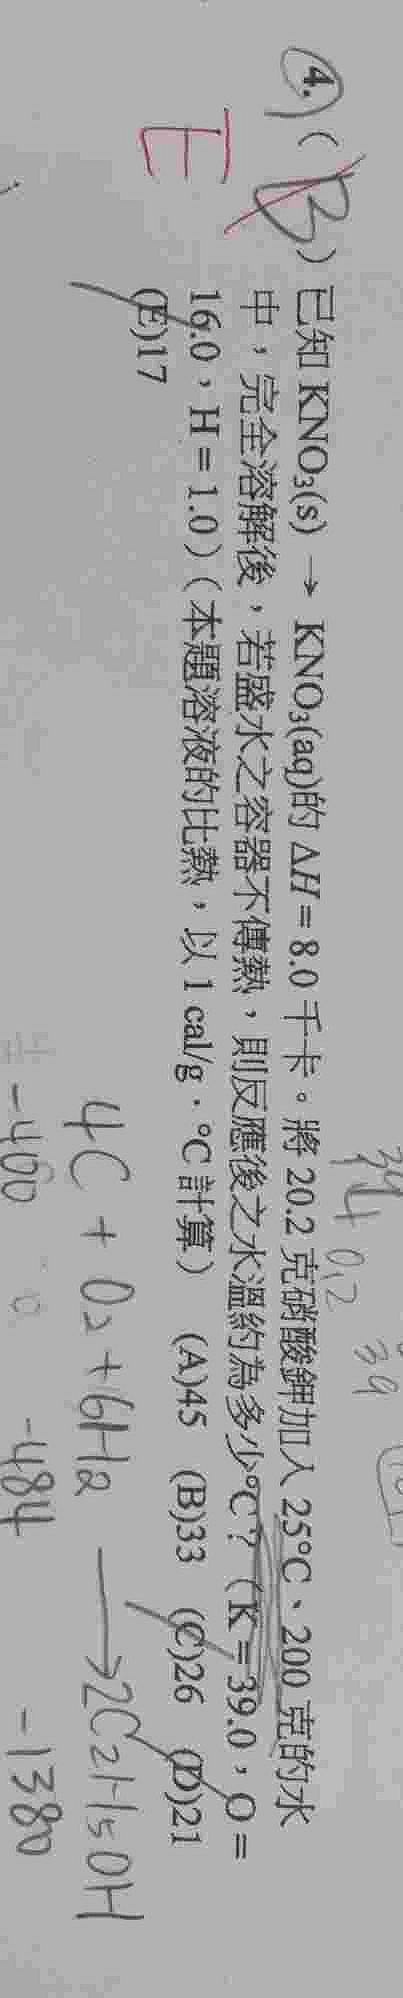 4. ( B ) 已知 KNO₃(s) → KNO₃(aq)的 ΔH = 8.0 千卡。將 20.2 克硝酸鉀加入 25°C、200 克的水
E
中,完全溶解後,若盛水之容器不傳熱,則反應後之水溫約為多少°C?(K = 39.0,O =
16.0,H = 1.0)(本題溶液的比熱,以 1 cal/g.°C 計算) (A)45 (B)33 (C)26 (D)21
(E)17
0.2
39
4C + O₂ + 6H₂ → 2C₂H₅OH
-460 0 -484 -1380